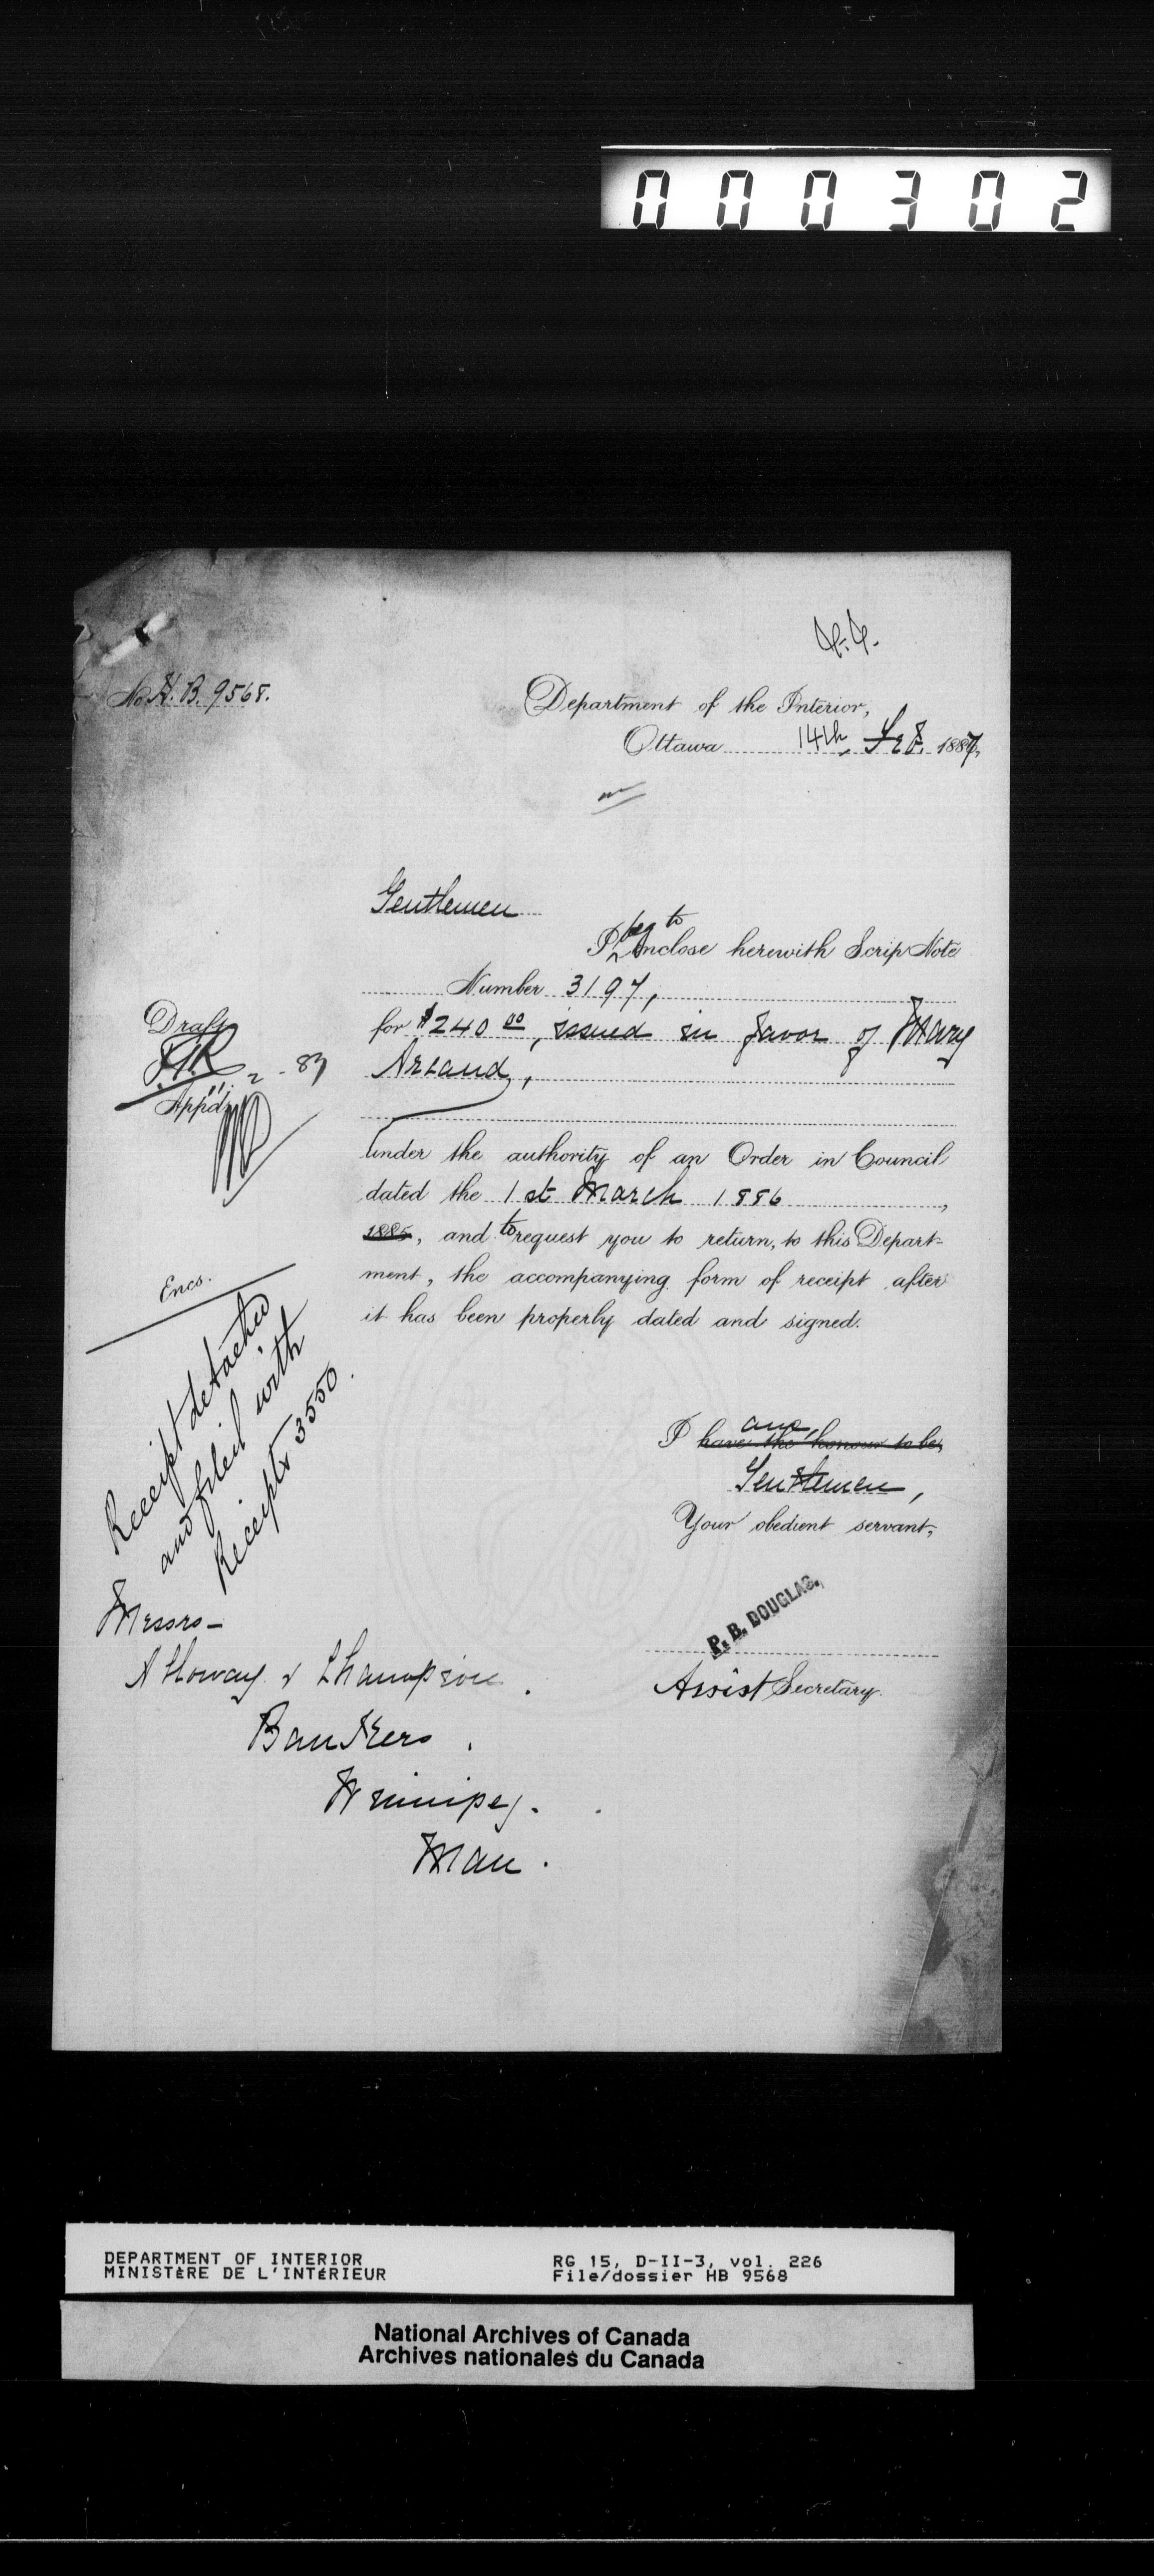 000302
No H.B. 9568.
Department of the Interior,
Ottawa 14th Feb. 1887,
Gentlemen
beg to
I Inclose herewith Scrip Note
Number 3197,
for $240 00, issued in favor of Mary
Arcand,
under the authority of an Order in Council
dated the 1st March 1886,
1885, and to request you to return, to this Depart-
ment, the accompanying form of receipt after
it has been properly dated and signed.
Draft
2 - 87
App'd
Encs.
Receipt detached
and filed with
Receipts 3550.
am,
I have the honour to be,
Gentlemen,
Your obedient servant,
P. B. DOUGLAS.
Assist Secretary.
Messrs -
Alloway & Champion.
Bankers.
Winnipeg.
Man.
DEPARTMENT OF INTERIOR
MINISTÈRE DE L'INTÉRIEUR
RG 15, D-II-3, vol. 226
File/dossier HB 9568
National Archives of Canada
Archives nationales du Canada